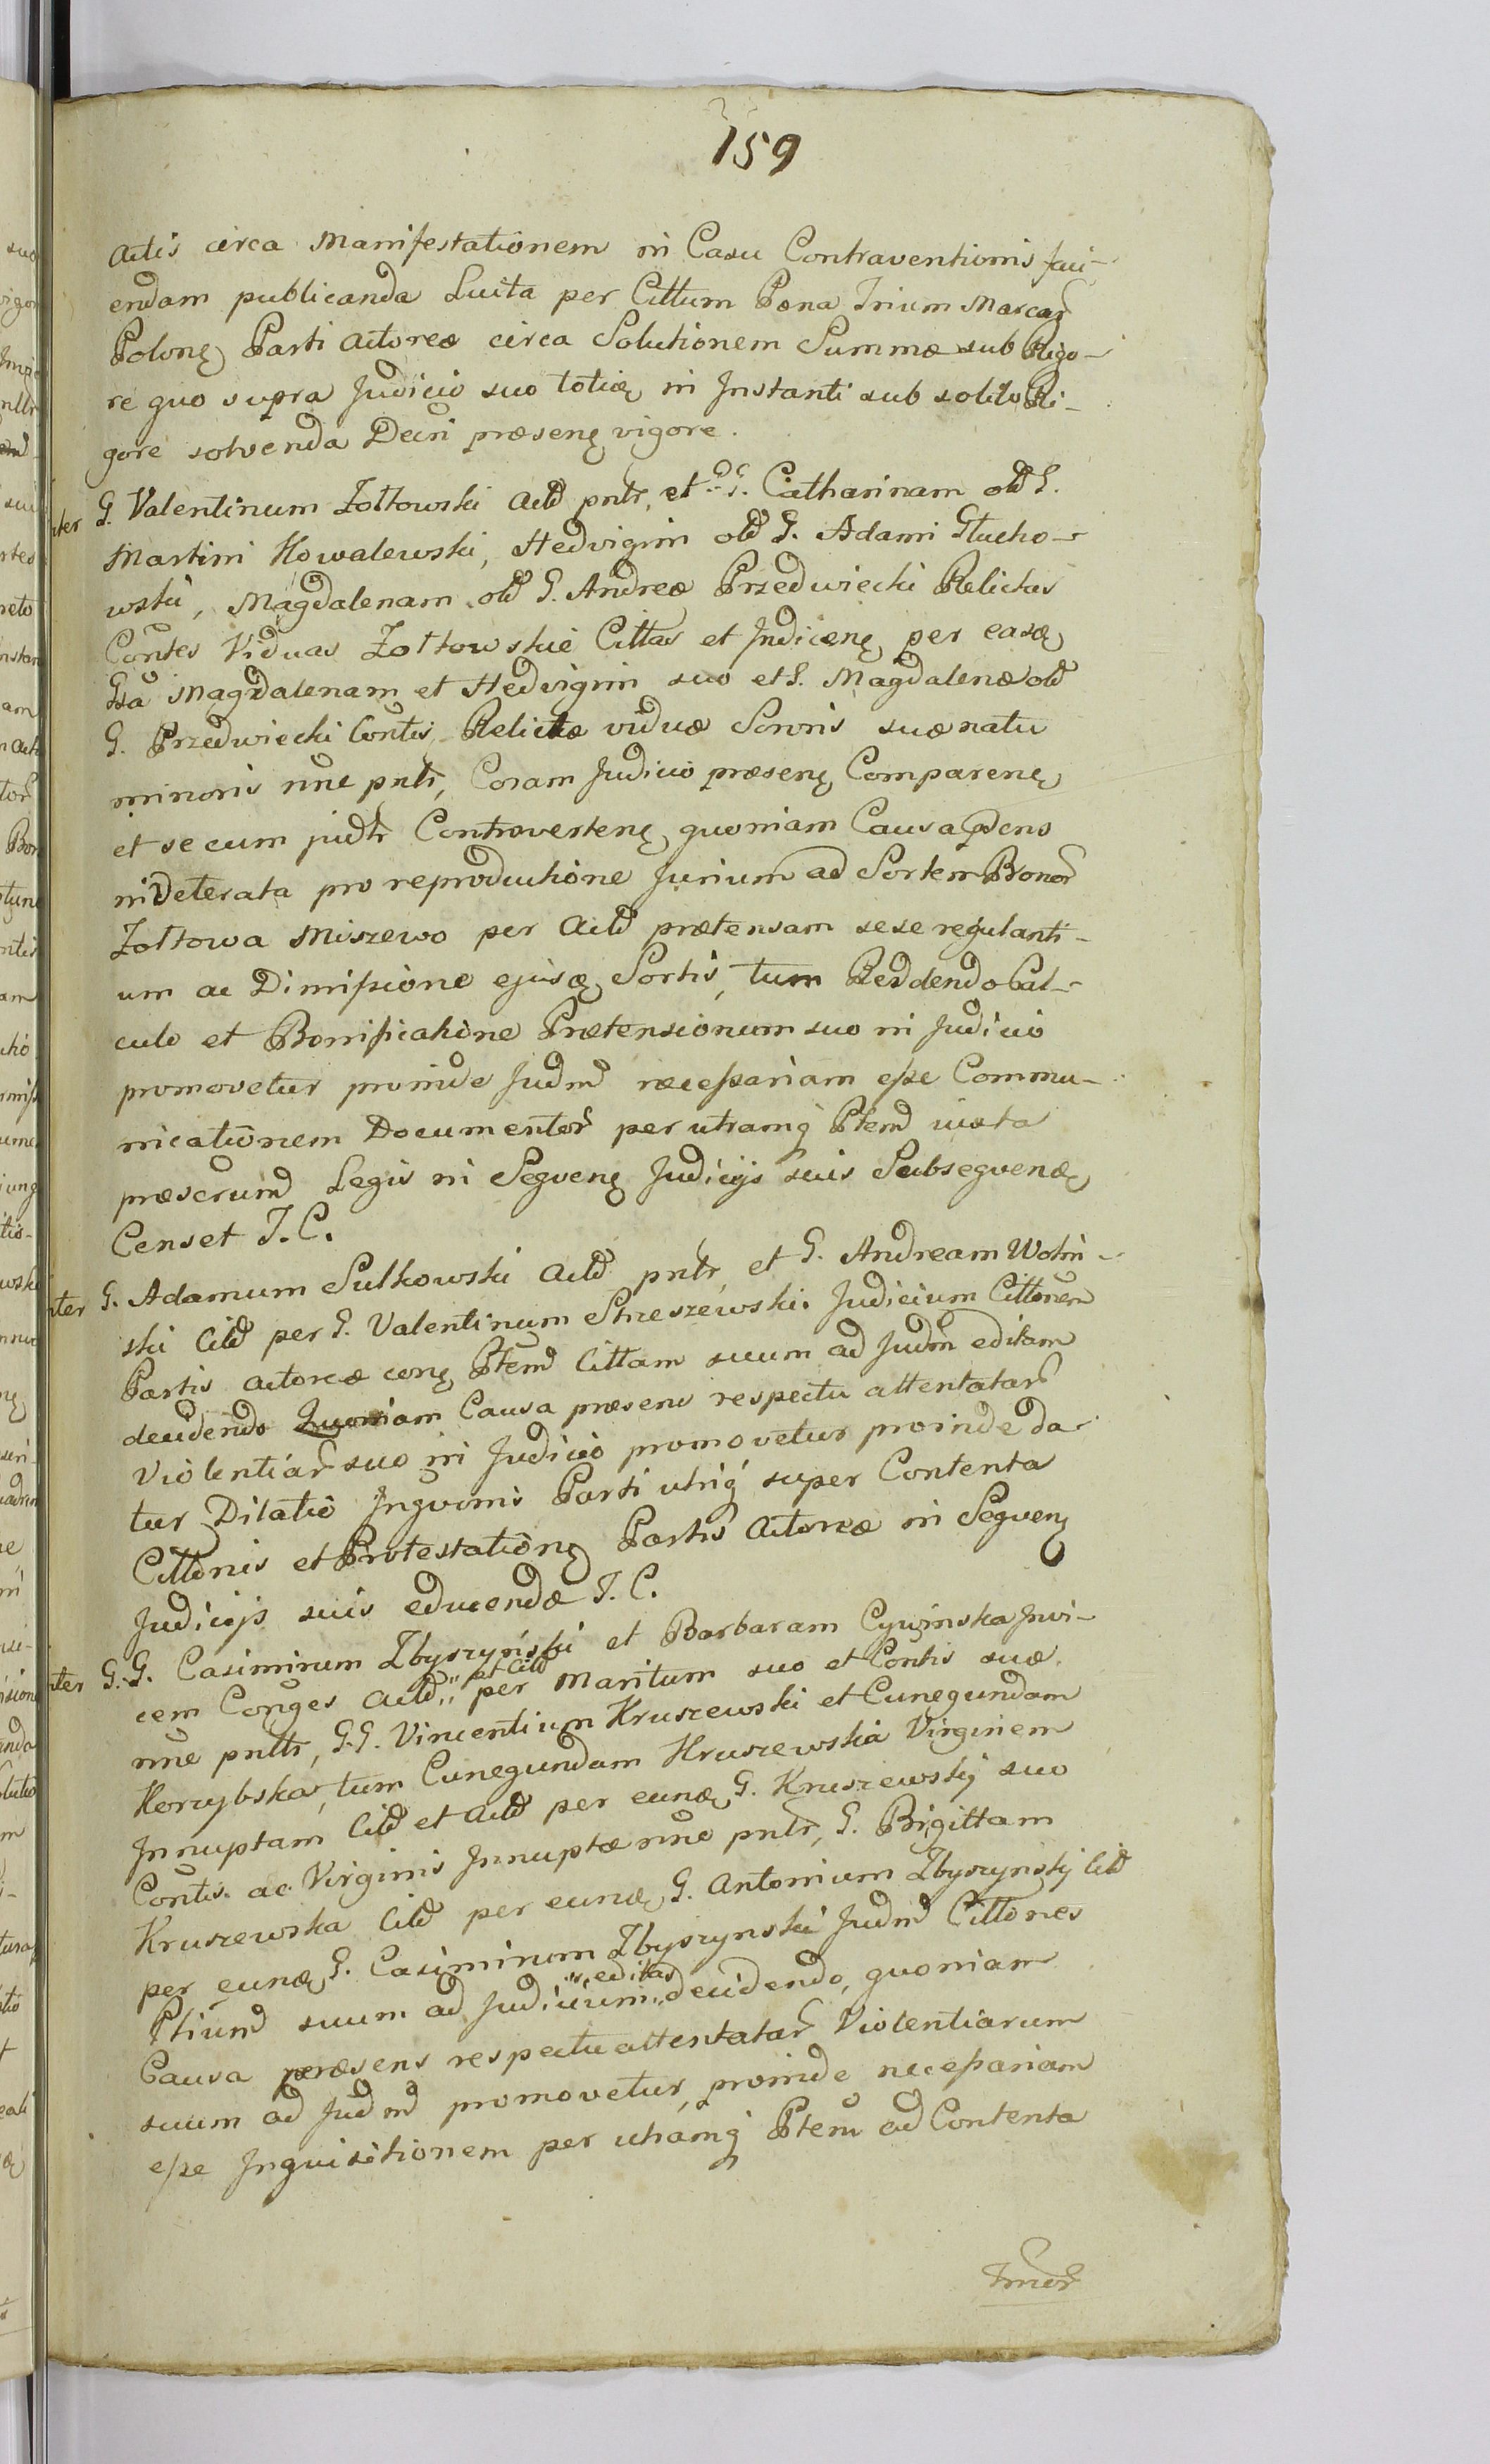 159
Actis circa Manifestationem in Casu Contraventionis faci-
endam publicanda Luita per Cittum Pæna Trium Marcar
Polonę Parti Actoreæ circa Solutionem Summæ sub Rigo-
re quo supra Judicio suo totię in Instanti sub solito Ri-
gore solvenda Decri præsenę vigore.
nter G. Valentinum Zołtowski Actd pntr, et G.G. Catharinam old G.
Martini Kowalewski, Hedvigim old G. Adami Głucho-
wski, Magdalenam old G. Andreæ Przedwiecki Relictas
Contes Viduas Zołtowskie Cittas et Judicenę per easę
Gsa Magdalenam et Hedvigim suo et G. Magdalenæ old
G. Przedwiecki Contis Relictæ viduæ Sororis suæ natu
minoris nne pnti, Coram Judicio præsenę Comparenę
et secum judtr Controvertenę, quoniam Causa pdens
inveterata pro reproductione Jurium ad Sortem Bonor
Zołtowa Miszewo per Actd prætensam sese regulanti-
um ac Dimissione ejusę Sortis, tum Reddendo Cal-
culo et Bonificatione Prætensionum suo in Judicio
promovetur proinde Judmd necessariam esse Commu-
nicationem Documentor per utramq Ptemd iuxta
præscrumd Legis in Seqvenę Judicijs suis Subseqvendę
Censet I. C.
nter G. Adamum Sulkowski Actd pntr et G. Andream Wolin-
ski Citd per G. Valentinum Strzeszewski. Judicium Cittonem
Partis Actoreæ conę Ptemd Cittam suum ad Judm editam
decidendo Quoniam Causa præsens respectu attentatar
Violentiar suo in Judicio promovetur proinde da-
tur Dilatio Inqvonis Parti utriq super Contenta
Cittonis et Protestationę Partis Actoreæ in Seqvenę
Judicijs suis educendæ I. C.
nter G.G. Casimirum Zbyszyński et Barbaram Cywinska Invi-
cem Conges Actd et Citd per Maritum suo et Contis suæ
nne pnttr, G.G. Vincentium Kruszewski et Cunegundam
Korzybska, tum Cunegundam Kruszewska Virginem
Innuptam Citd et Actd per eunę G. Kruszewskij suo
Contis ac Virginis Innuptæ nne pntr, G. Brigittam
Kruszewska Citd per eunę G. Antonium Zbyszynskij Citd
per eunę G. Casimirum Zbyszynski Judmd Cittones
Ptiumd suum ad Judicium editas decidendo, quoniam
Causa præsens respectu attentatar Violentiarum
suum ad Judmd promovetur, proinde necessariam
esse Inquisitionem per utramq Ptem ad Contenta